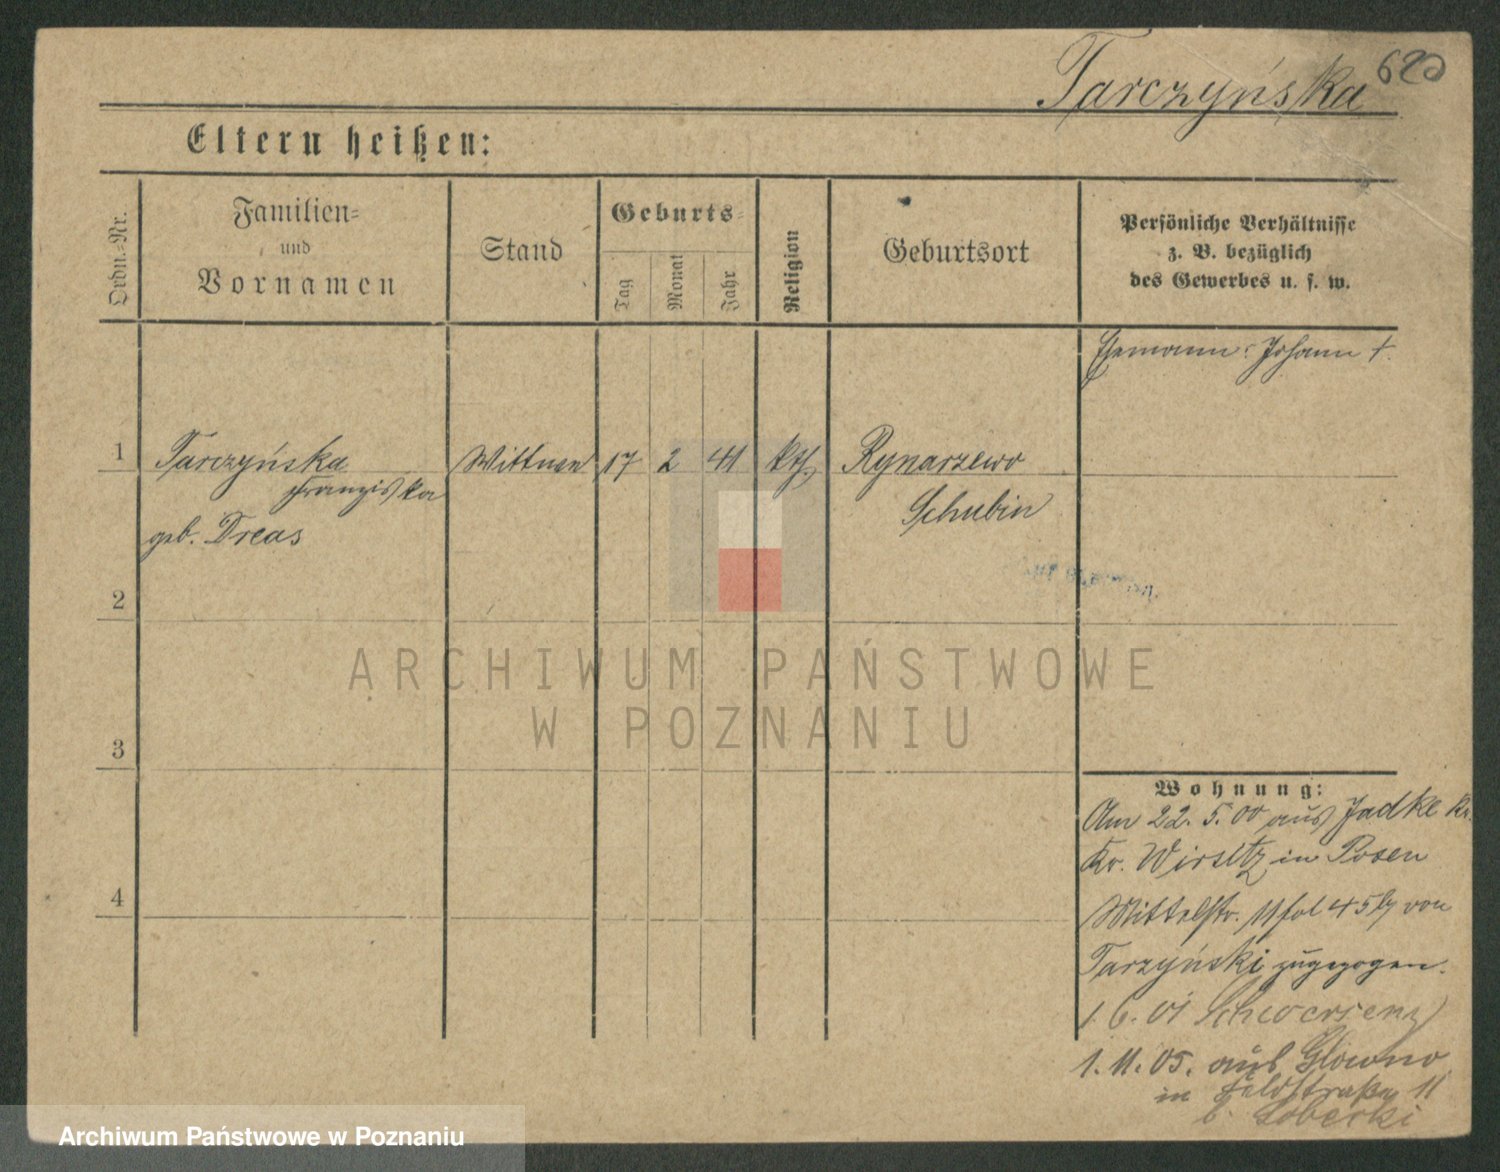 Tarczyńska
Eltern heißen:
Ordn.=Nr.
Familien=
und
Vornamen
Stand
Geburts=
Tag
Monat
Jahr
Religion
Geburtsort
Persönliche Verhältnisse
z. B. bezüglich
des Gewerbes u. s. w.
Ehemann: Johann †.
1
Tarczyńska
Franziska
geb. Dreas
Wittwe
17
2
41
kth.
Rynarzewo
Schubin
2
ARCHIWUM PAŃSTWOWE
W POZNANIU
3
4
Wohnung:
Am 22. 5. 00 aus Jadke
Kr. Wirsitz in Posen
Mittelstr. 11 fol 45 von
Tarzyński zugezogen.
1. 6. 01 Schwersenz
1. 11. 05. aus Glowno
in Feldstraße 11
b.
Archiwum Państwowe w Poznaniu